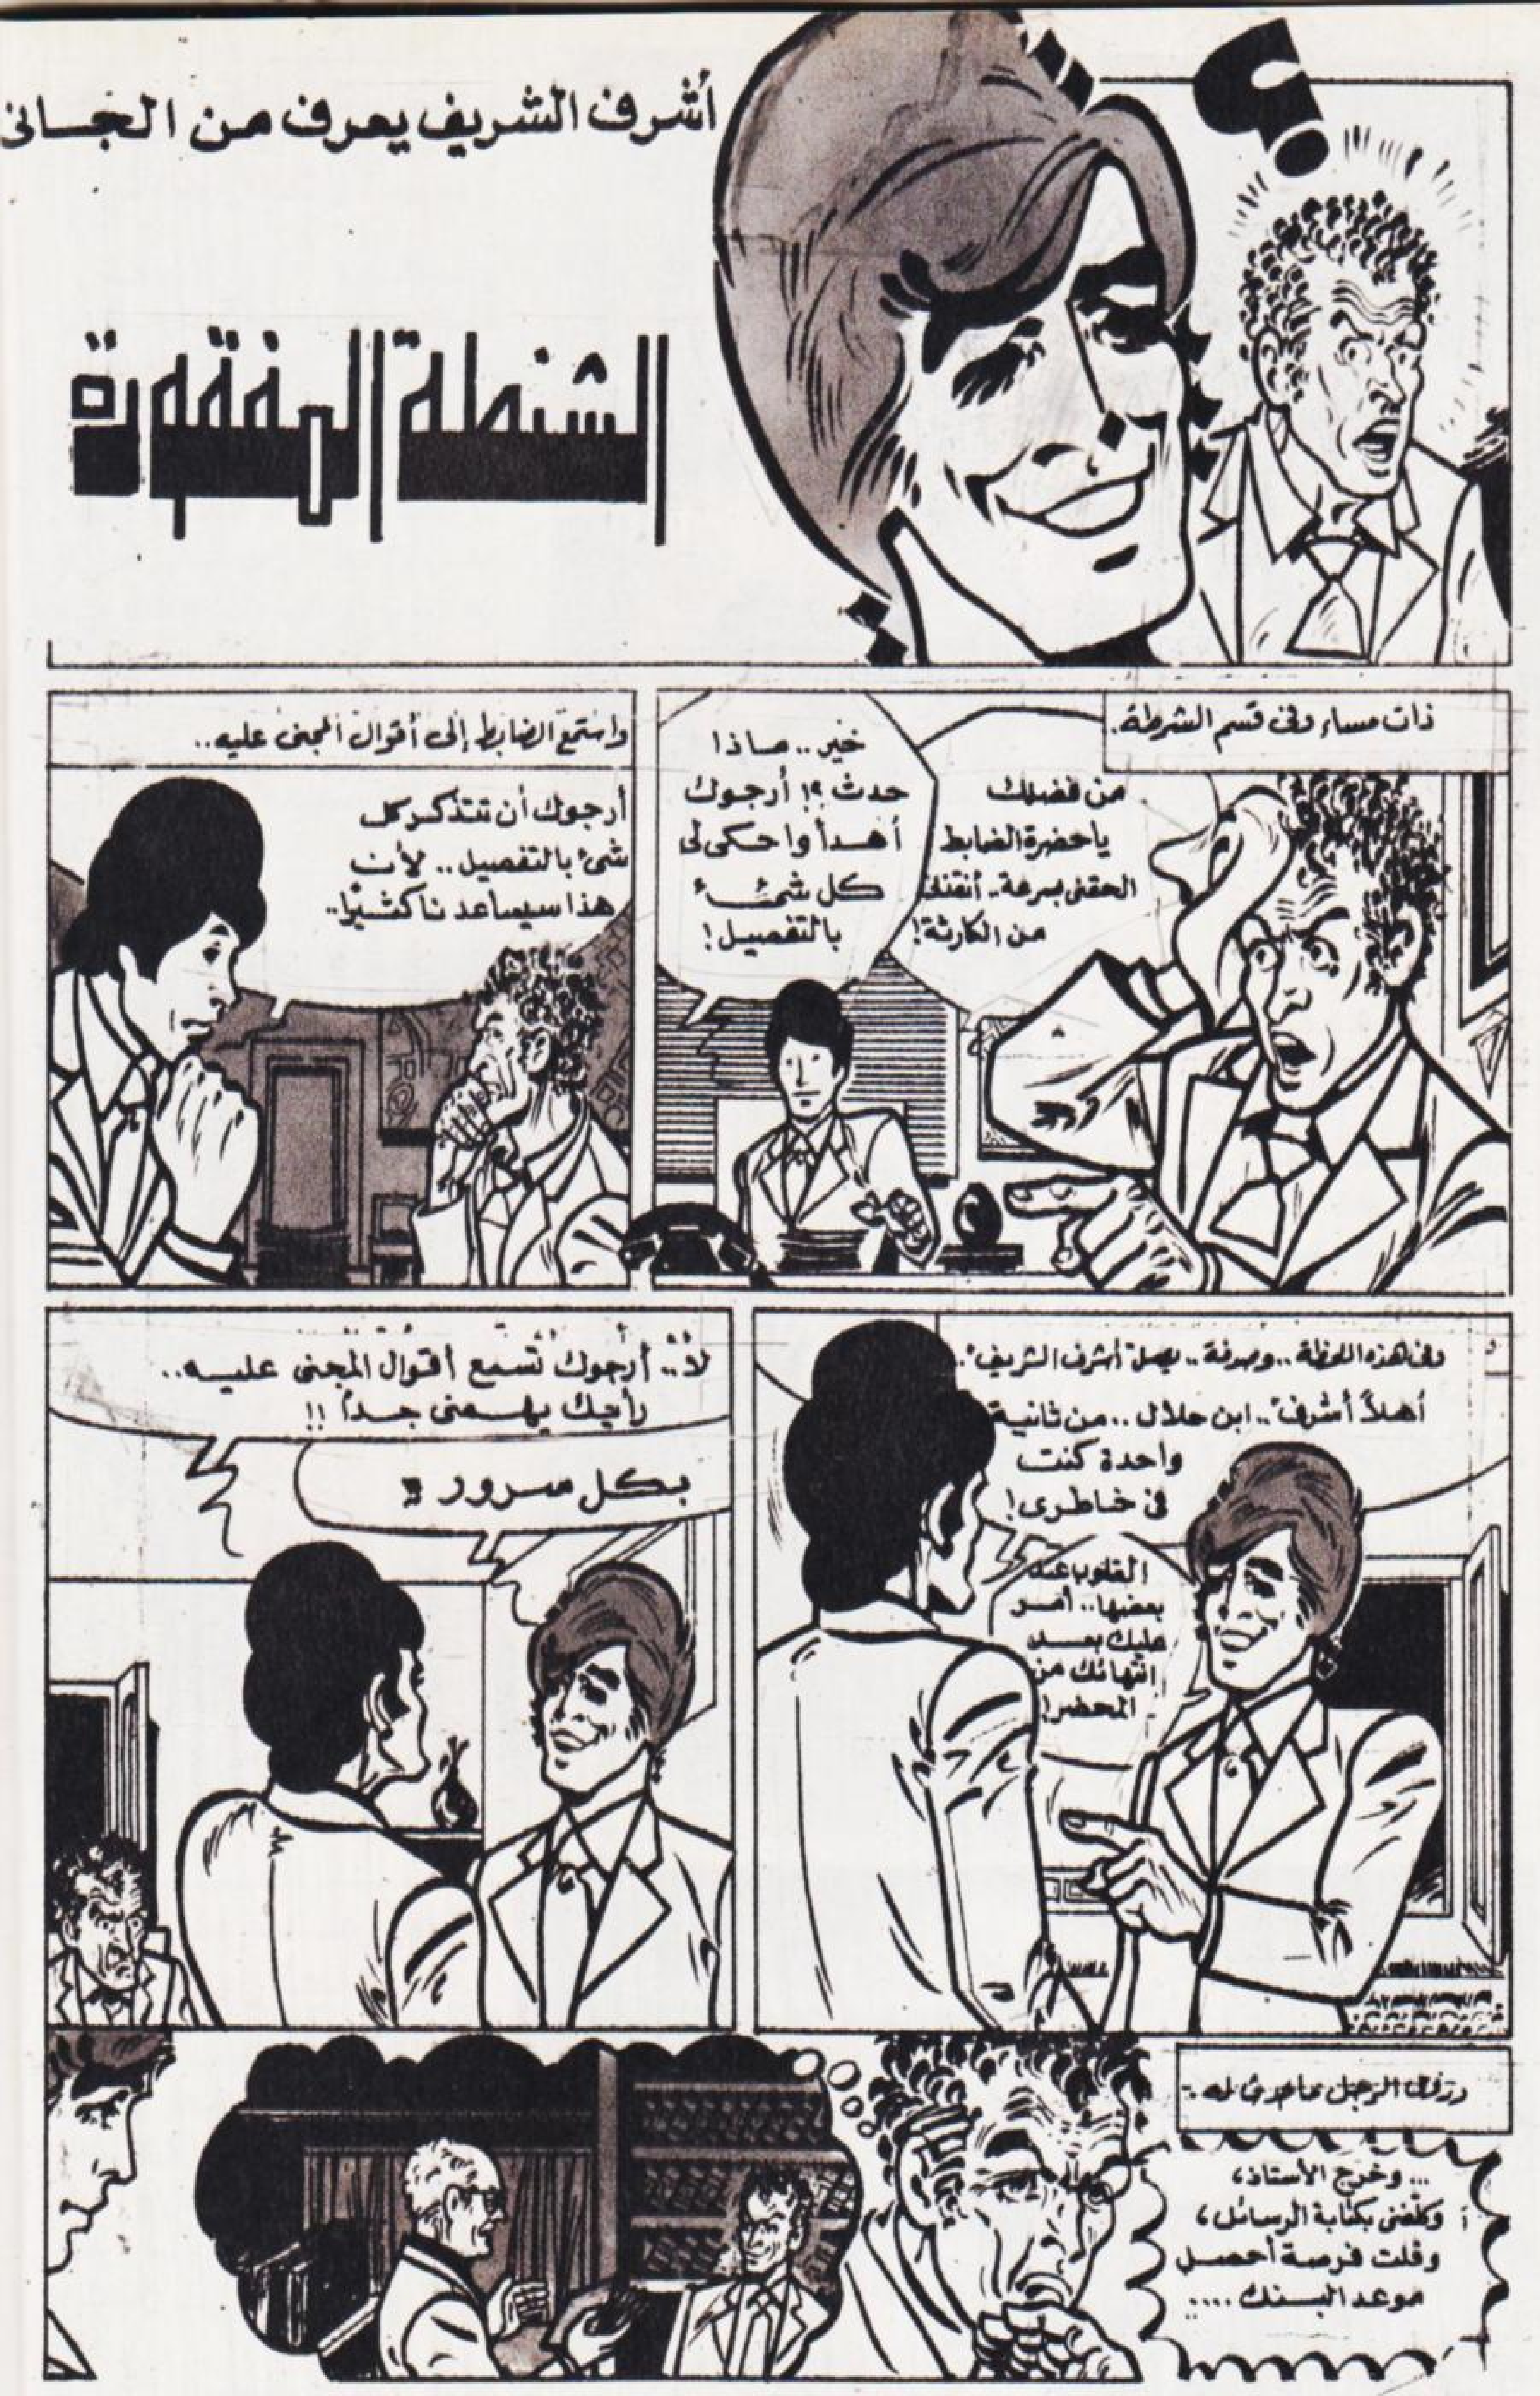 أشرف الشريف يعرف من الجانى
؟
الشنطة المفقودة
ذات مساء وفى قسم الشرطة.
من فضلك
ياحضرة الضابط
الحقنى بسرعة.. أنقذنى
من الكارثة!
خير.. ماذا
حدث ؟! أرجوك
أهدأ واحكى لى
كل شئ
بالتفصيل!
واستمع الضابط إلى أقوال المجنى عليه..
أرجوك أن تتذكر كل
شئ بالتفصيل.. لأن
هذا سيساعدنا كثيرًا..
وفى هذه اللحظة.. وصدفة.. يصل أشرف الشريف..
أهلاً أشرف.. ابن حلال.. من ثانية
واحدة كنت
فى خاطرى!
القلوب عند
بعضها.. أمر
عليك بعد
انتهائك من
المحضر!
لا.. أرجوك تسمع أقوال المجنى عليه..
رأيك يهمنى جداً !!
بكل سرور
الرجل
... وخرج الأستاذ،
وكلفنى بكتابة الرسائل،
وقلت فرصة أحصل
موعد البنك ....